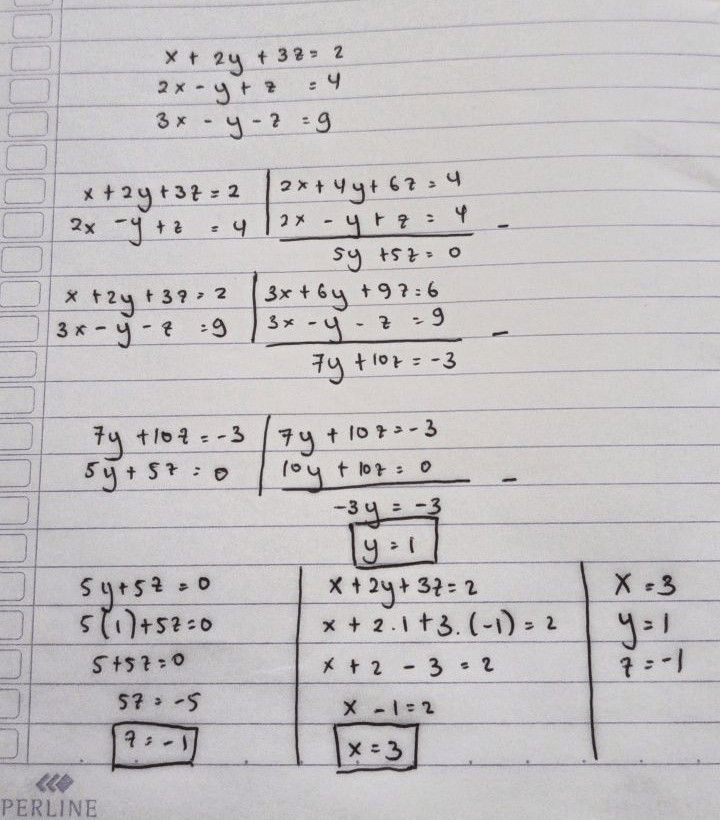 x + 2y + 3z = 2
2x - y + z = 4
3x - y - z = 9
x + 2y + 3z = 2 | 2x + 4y + 6z = 4
2x - y + z = 4 | 2x - y + z = 4 -
5y + 5z = 0
x + 2y + 3z = 2 | 3x + 6y + 9z = 6
3x - y - z = 9 | 3x - y - z = 9 -
7y + 10z = -3
7y + 10z = -3 | 7y + 10z = -3
5y + 5z = 0 | 10y + 10z = 0 -
-3y = -3
y = 1
5y + 5z = 0
5(1) + 5z = 0
5 + 5z = 0
5z = -5
z = -1
x + 2y + 3z = 2
x + 2.1 + 3.(-1) = 2
x + 2 - 3 = 2
x - 1 = 2
x = 3
x = 3
y = 1
z = -1
PERLINE